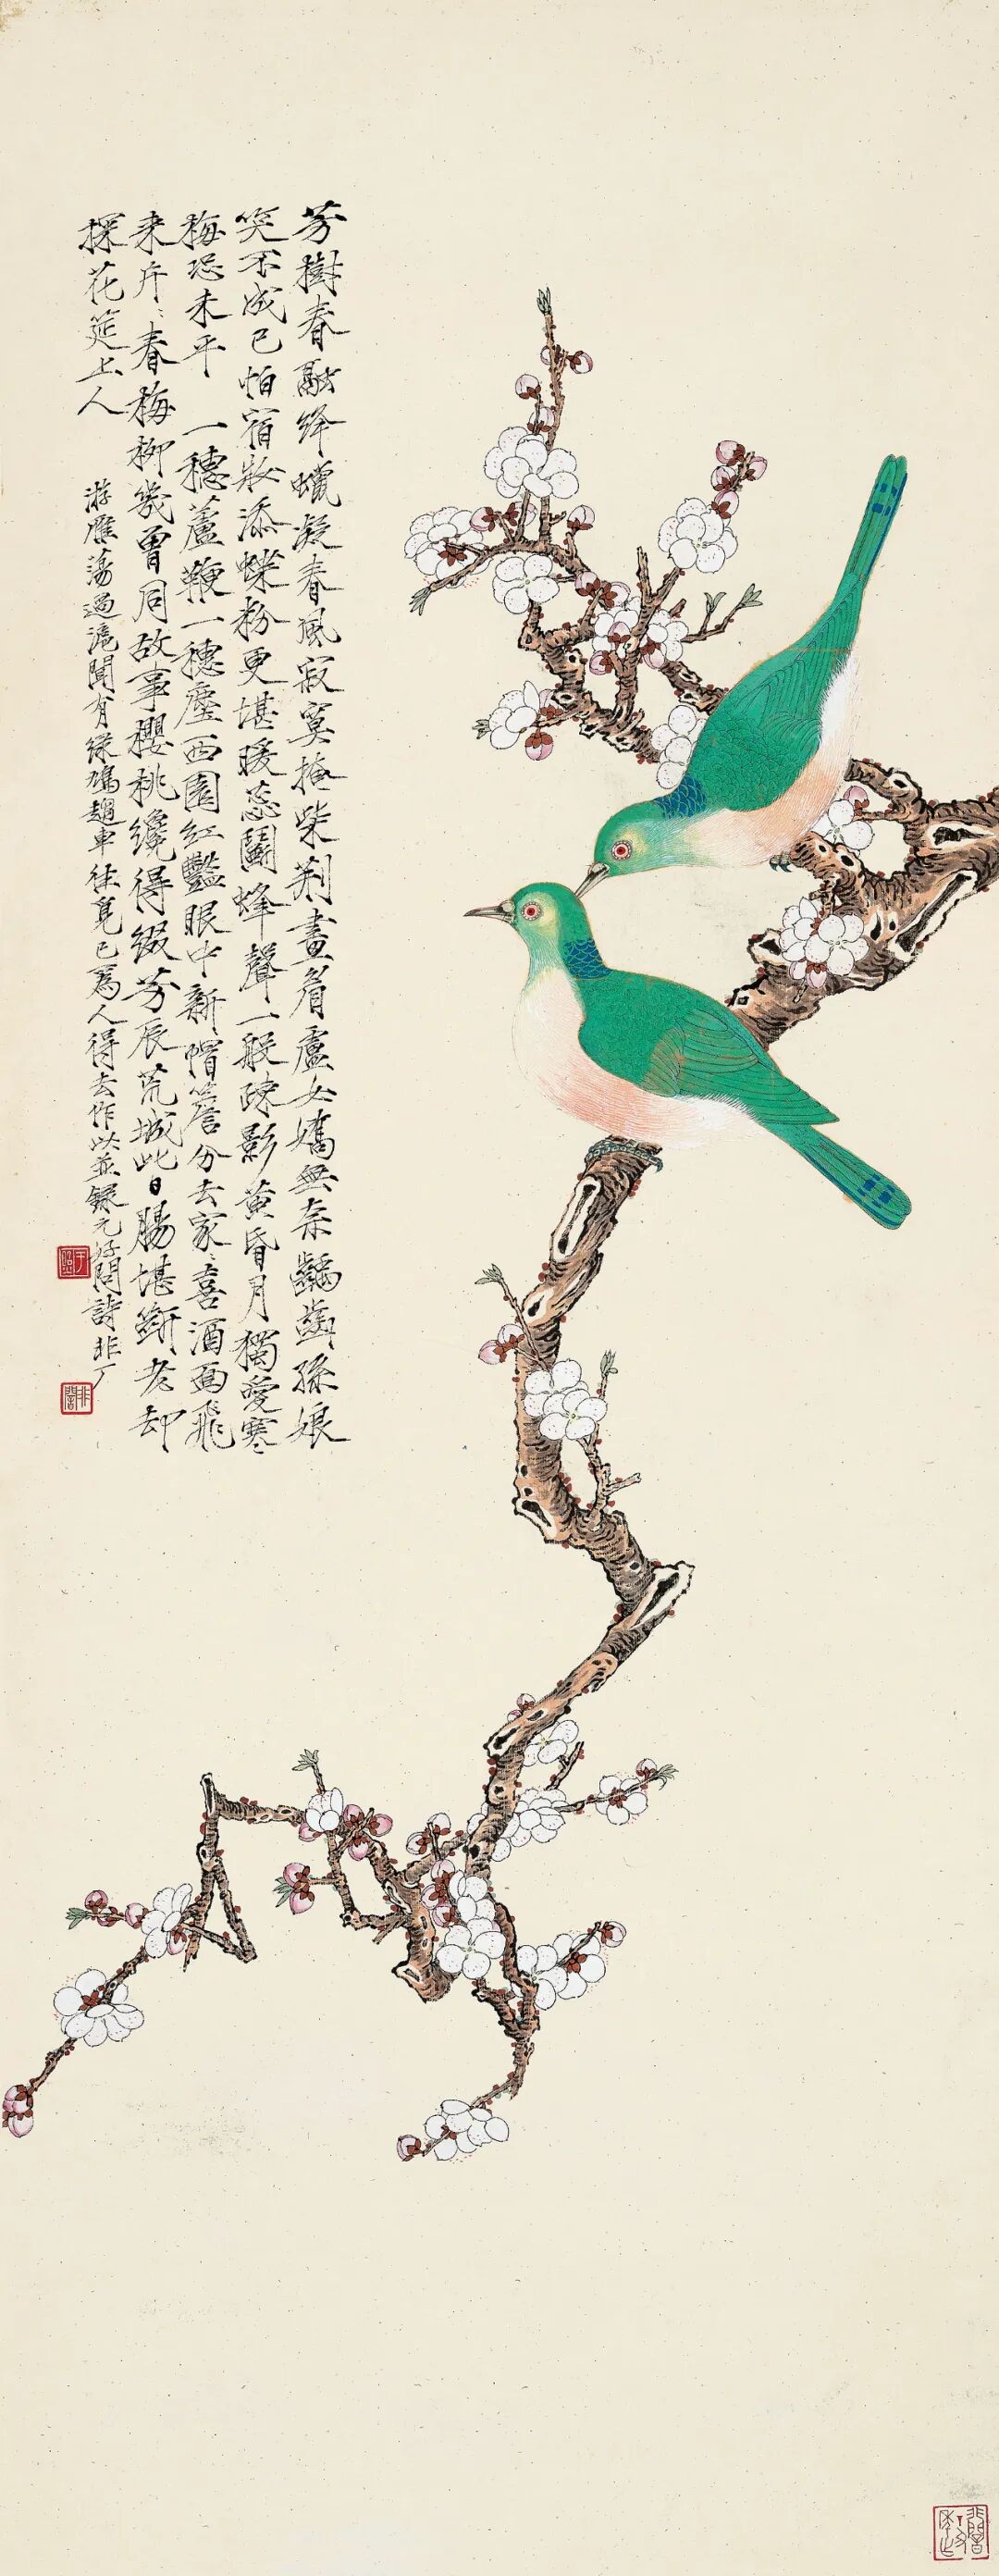 芳樹春融絳蠟凝春風寂寞掩柴荆畫眉盧女嬌無奈齲齒孫娘
笑不成已怕宿妝添蝶粉更堪暖蕊鬧蜂聲一般疎影黃昏月獨愛寒
梅恐未平 一穗蘆鞭一穗塵西園紅豔眼中新帽簷分去家〻喜酒面飛
来片〻春梅柳幾曾同故事櫻桃纔得綴芳辰荒城此日腸堪斷老却
探花筵上人
游雁蕩過滬聞有綠鳩趨車往覓已爲人得去作此並録元好問詩非厂
于照
非闇